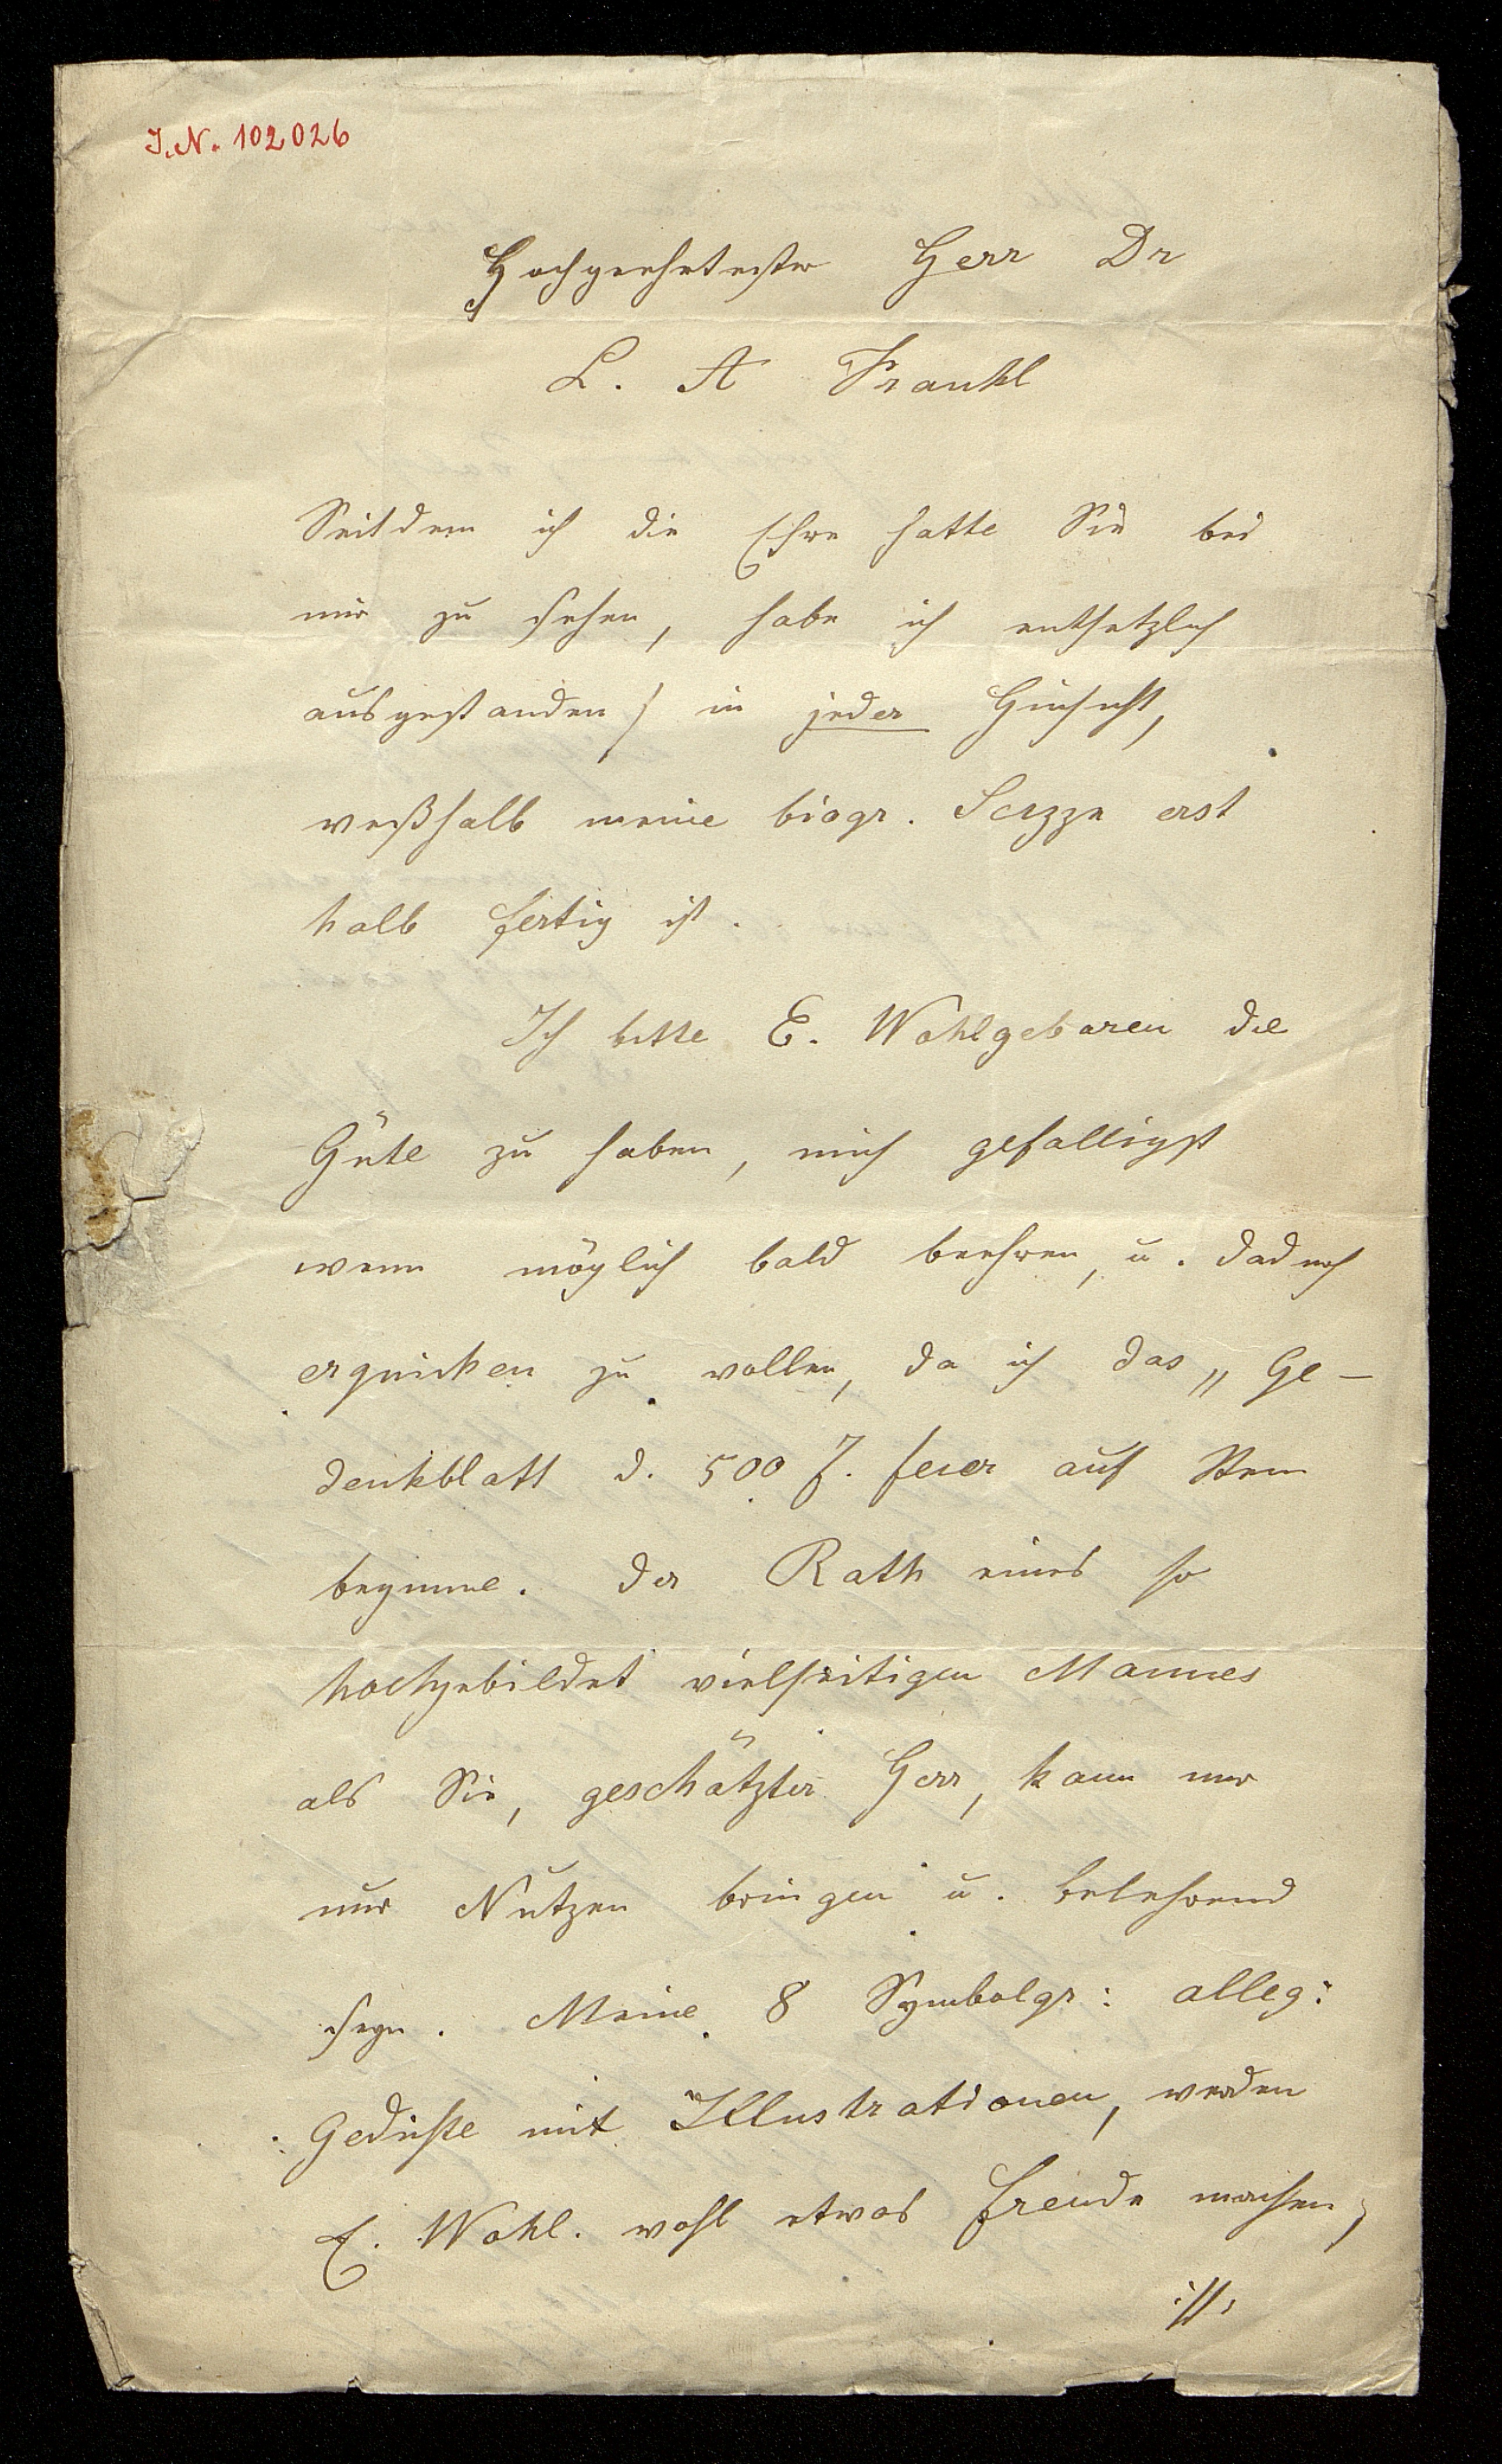 I.N. 102026
Hochgeehrtester Herr Dr
L. A Frankl
Seitdem ich die Ehre hatte Sie bei
mir zu sehen, habe ich entsetzlich
ausgestanden / in jeder Hinsicht,
weßhalb meine biogr. Scizze erst
halb fertig ist.
Ich bitte E. Wohlgeboren die
Güte zu haben, mich gefalligst
wenn möglich bald beehren, u. dadurch
erquicken zu wollen, da ich das „Ge-
denkblatt d. 500 J. feier auf Stein
beginne. Der Rath eines so
hochgebildet vielseitigen Mannes
als Sie, geschätzter Herr, kann mir
nur Nutzen bringen u. belehrend
seyn. Meine 8 Symbolgr: alleg:
Gedichte mit Illustrationen, werden
E. Wohl. wohl etwas freude machen,